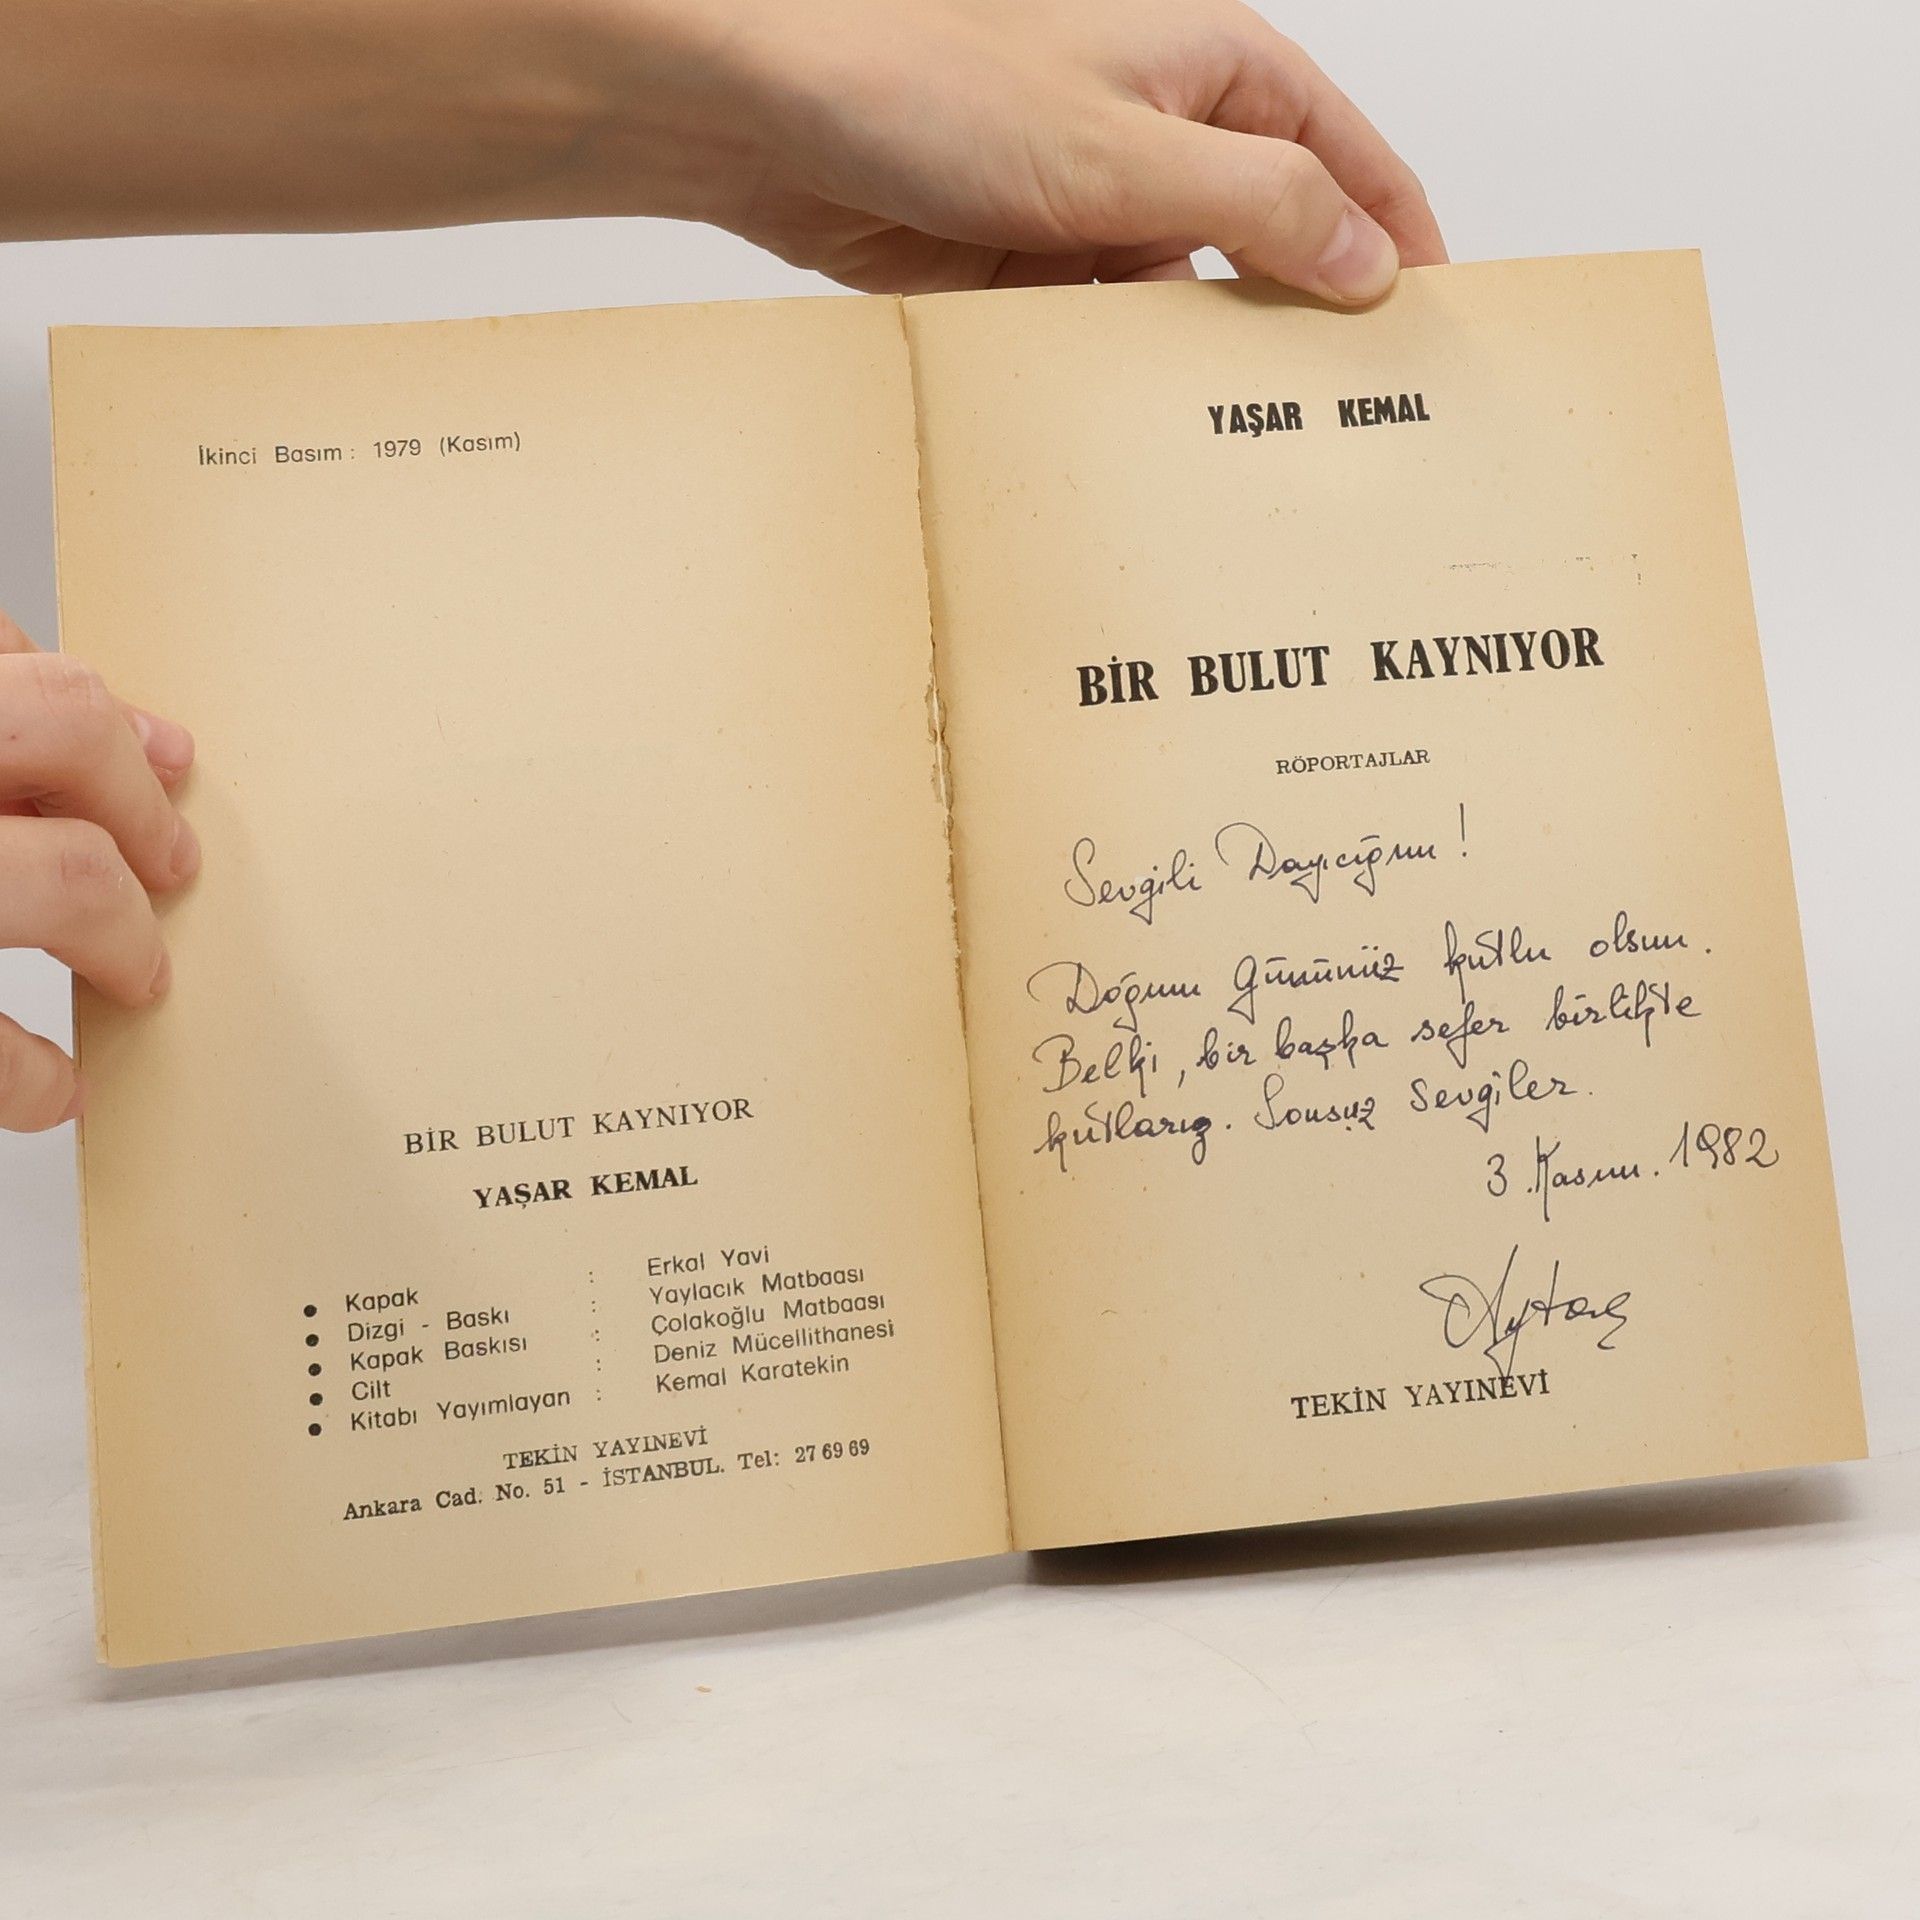 İkinci Basım: 1979 (Kasım)
BİR BULUT KAYNIYOR
YAŞAR KEMAL
● Kapak : Erkal Yavi
● Dizgi - Baskı : Yaylacık Matbaası
● Kapak Baskısı : Çolakoğlu Matbaası
● Cilt : Deniz Mücellithanesi
● Kitabı Yayımlayan : Kemal Karatekin
TEKİN YAYINEVİ
Ankara Cad. No. 51 - İSTANBUL. Tel: 27 69 69
YAŞAR KEMAL
BİR BULUT KAYNIYOR
RÖPORTAJLAR
Sevgili Dayıcığım!
Doğum Gününüz kutlu olsun.
Belki, bir başka sefer birlikte
kutlarız. Sonsuz Sevgiler.
3.Kasım.1982
TEKİN YAYINEVİ